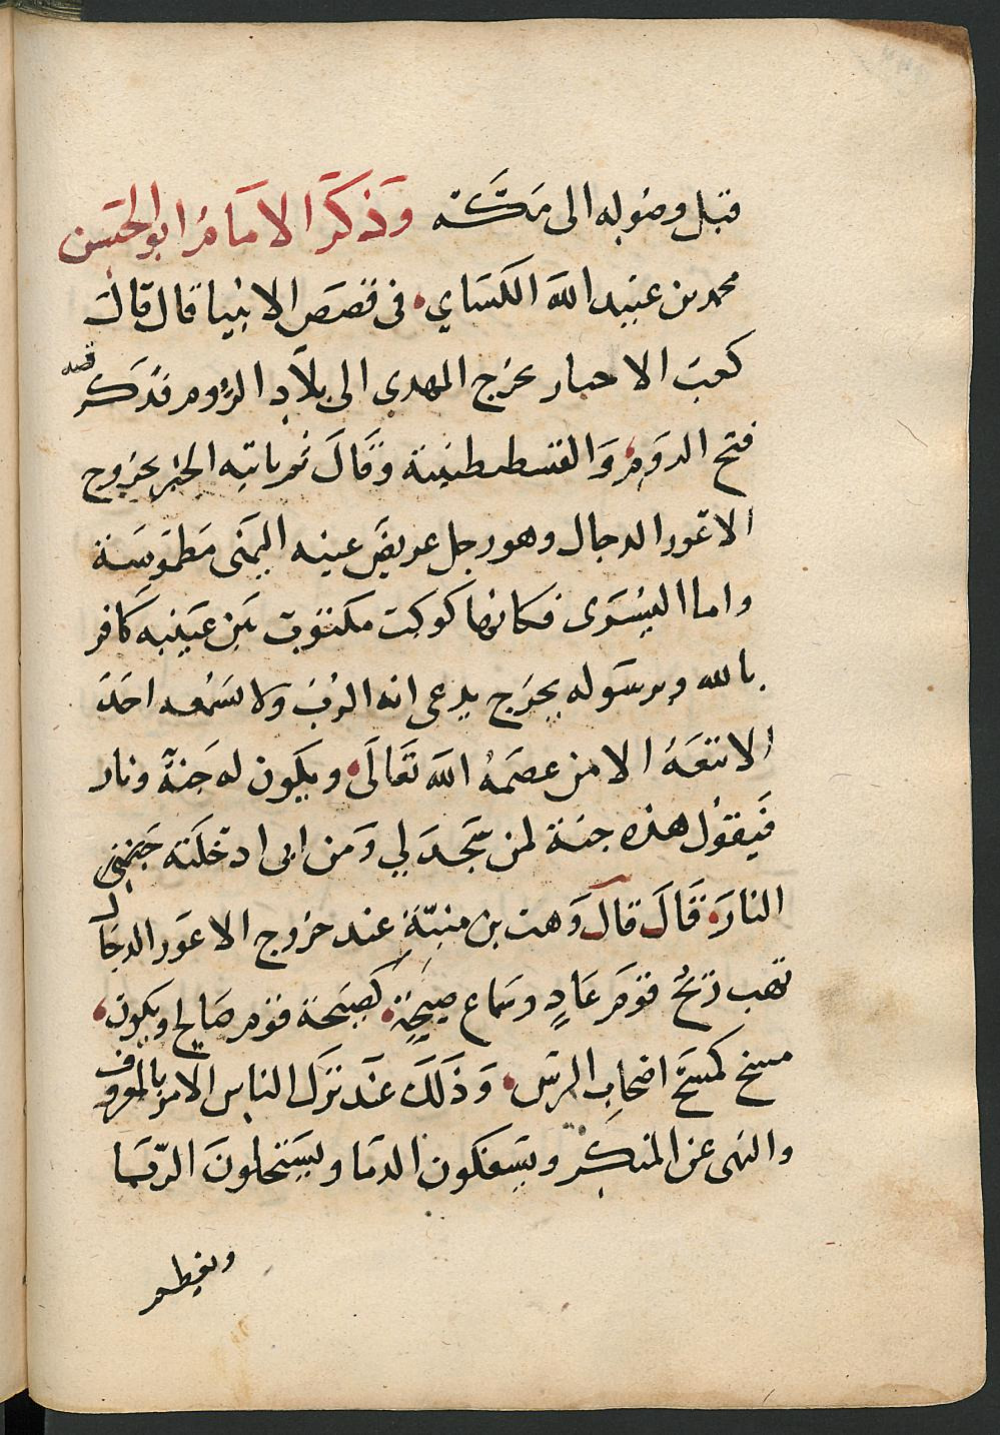 قبل وصوله الى مكة وذكر الامام ابو الحسن
محمد بن عبيد الله الكساي في قصص الانبيا قال قال
كعب الاحبار يخرج المهدى الى بلاد الروم فذكر قصه
فتح الروم والقسطنطينية وقال ثم ياتيه الخبر بخروج
الاعور الدجال وهو رجل عريض عينه اليمنى مطموسة
واما اليسرى فكانها كوكب مكتوب بين عينيه كافر
بالله وبرسوله يخرج يدعى انه الرب ولا يسمعه احد
الا تبعه الا من عصمه الله تعالى ويكون له جنة ونار
فيقول هذه جنة لمن سجد لي ومن ابى ادخلته جهنم
النار قال قال وهب بن منبة عند خروج الاعور الدجال
تهب ريح قوم عاد وسماع صيحة كصيحة قوم صالح ويكون
مسخ كمسخ اصحاب الرس وذلك عند ترك الناس الامر بالمعروف
والنهى عن المنكر ويسفكون الدما ويستحلون الربا